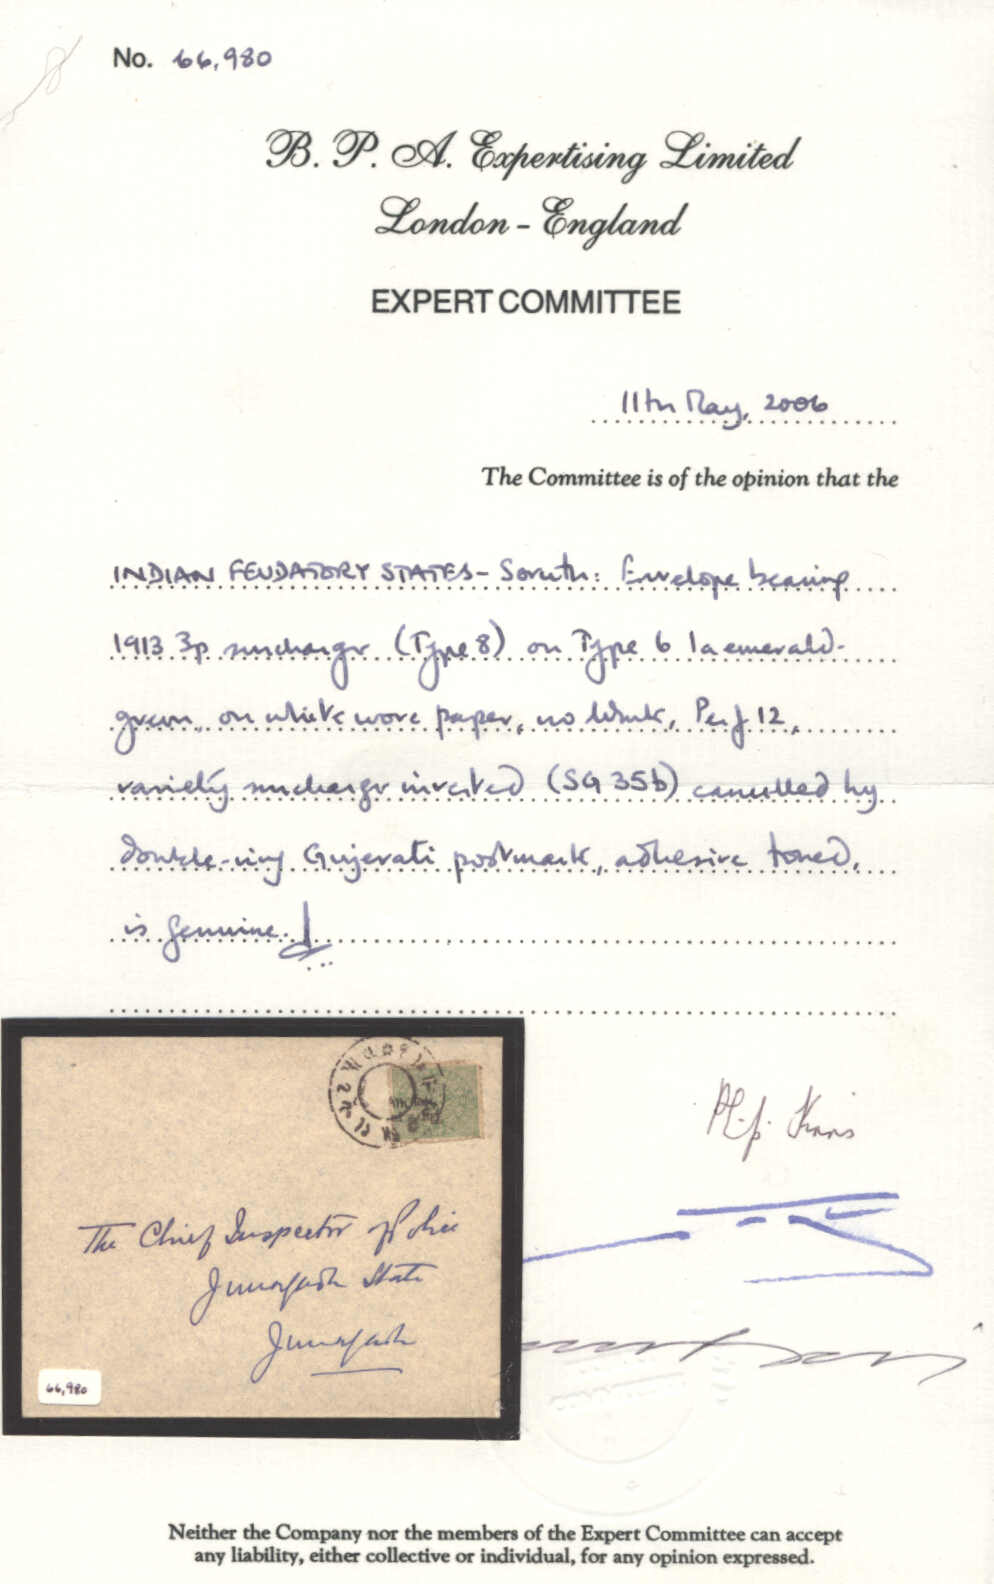 No. 66,980
B. P. A. Expertising Limited
London - England
EXPERT COMMITTEE
11th May, 2006
The Committee is of the opinion that the
INDIAN FEUDATORY STATES - Soruth: Envelope bearing
1913 3p surcharge (Type 8) on Type 6 1a emerald-
green, on white wove paper, no Wmk, Perf 12,
variety surcharge inverted (SG 35b) cancelled by
double-ring Gujerati postmark, adhesive toned,
is genuine.
The Chief Inspector of Police
Junagadh State
Junagadh
66,980
Neither the Company nor the members of the Expert Committee can accept
any liability, either collective or individual, for any opinion expressed.